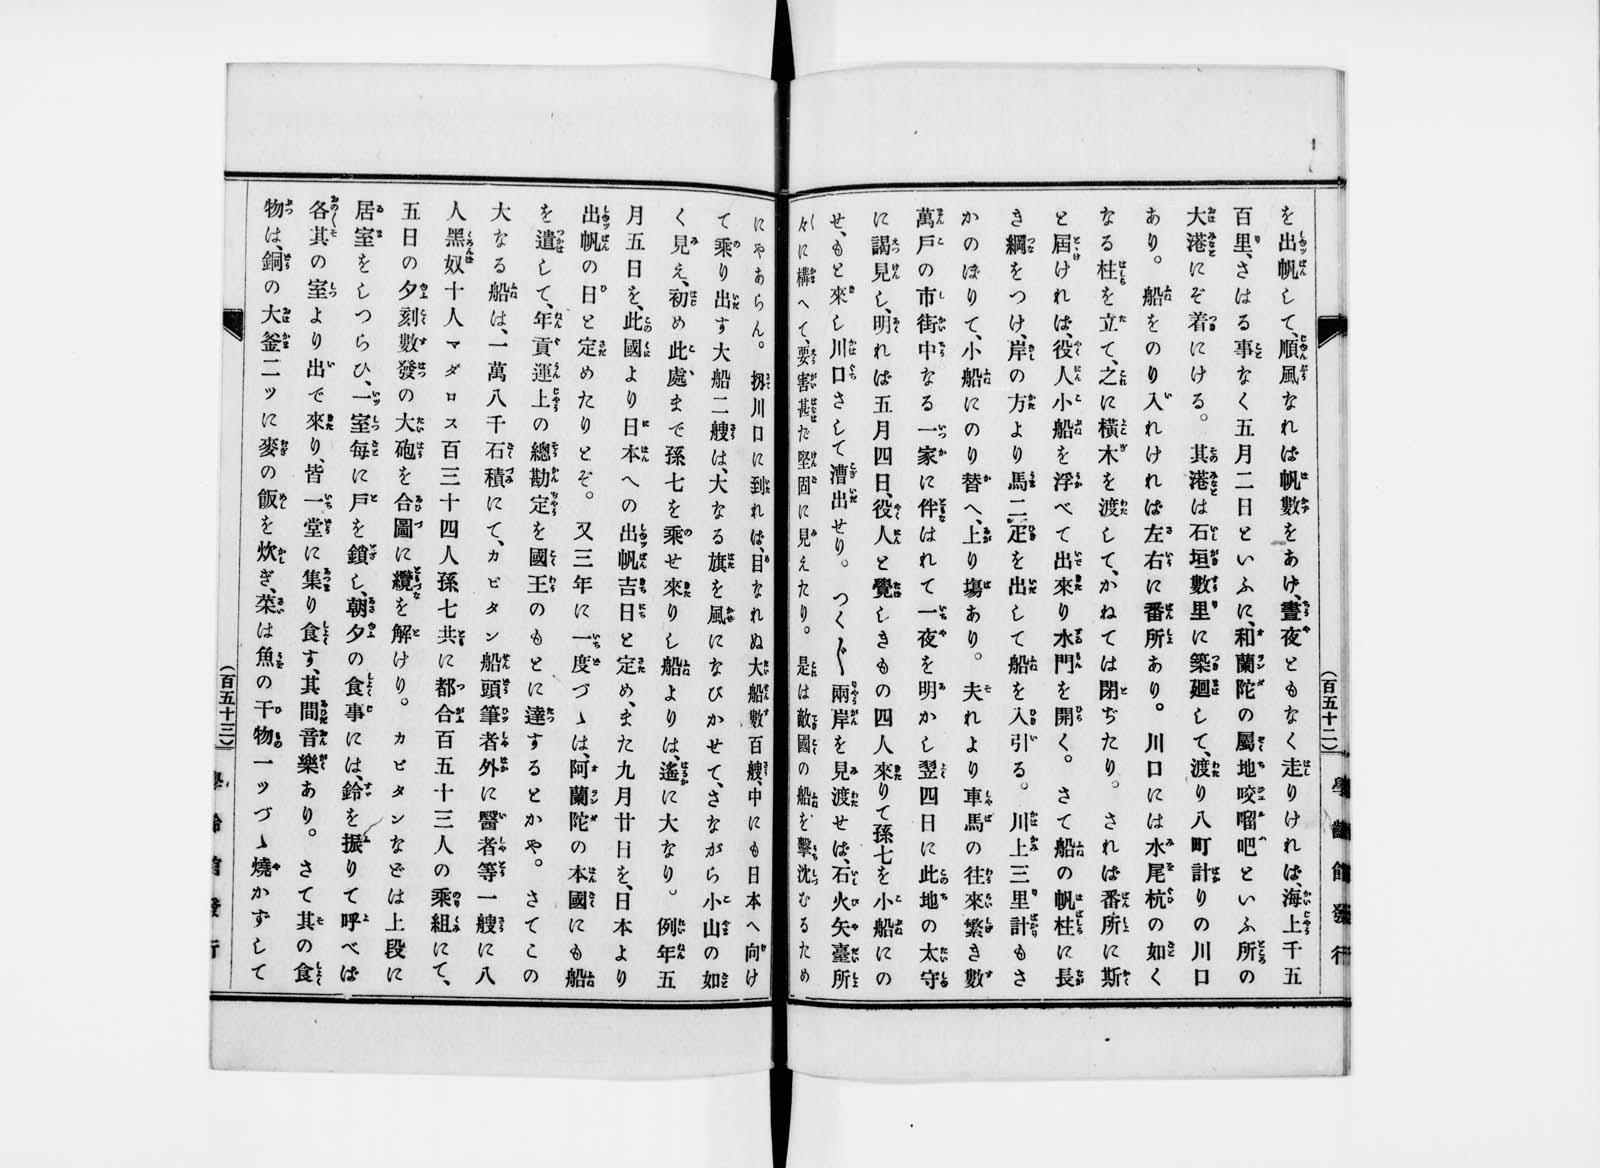 を出帆して、順風なれば帆數をあけ、晝夜ともなく走りければ、海上千五
百里、さはる事なく五月二日といふに、和蘭陀の屬地咬𠺕吧といふ所の
大港にぞ着にける。其港は石垣數里に築廻して、渡り八町計りの川口
あり。船をのり入れけれは左右に番所あり。川口には水尾杭の如く
なる柱を立て、之に横木を渡して、かねては閉ぢたり。されば番所に斯
と屆けれは、役人小船を浮べて出來り水門を開く。さて船の帆柱に長
き綱をつけ、岸の方より馬二疋を出して船を入引る。川上三里計もさ
かのぼりて、小船にのり替へ、上り塲あり。夫れより車馬の往來繁き數
萬戸の市街中なる一家に伴はれて一夜を明かし翌四日に此地の太守
に謁見し、明れば五月四日、役人と覺しきもの四人來りて孫七を小船にの
せ、もと來し川口さして漕出せり。つく〴〵兩岸を見渡せば、石火矢臺所
々に構へて、要害甚だ堅固に見えたり。是は敵國の船を擊沈むるため
にやあらん。扨川口に到れは、目なれぬ大船數百艘、中にも日本へ向け
て乘り出す大船二艘は、大なる旗を風になびかせて、さながら小山の如
く見え、初め此處まで孫七を乘せ來りし船よりは、遙に大なり。例年五
月五日を、此國より日本への出帆吉日と定め、また九月廿日を、日本より
出帆の日と定めたりとぞ。又三年に一度づゝは、阿蘭陀の本國にも船
を遣して、年貢運上の總勘定を國王のもとに達するとかや。さてこの
大なる船は、一萬八千石積にて、カピタン船頭筆者外に醫者等一艘に八
人黑奴十人マダロス百三十四人孫七共に都合百五十三人の乘組にて、
五日の夕刻數發の大砲を合圖に纜を解けり。カピタンなどは上段に
居室をしつらひ、一室每に戸を鎖し、朝夕の食事には、鈴を振りて呼べば
各其の室より出で來り、皆一堂に集り食す、其間音樂あり。さて其の食
物は、銅の大釜二ッに麥の飯を炊ぎ、菜は魚の干物一ッづゝ燒かずして
（百五十二）
學齡館發行
（百五十三）
學齡館發行